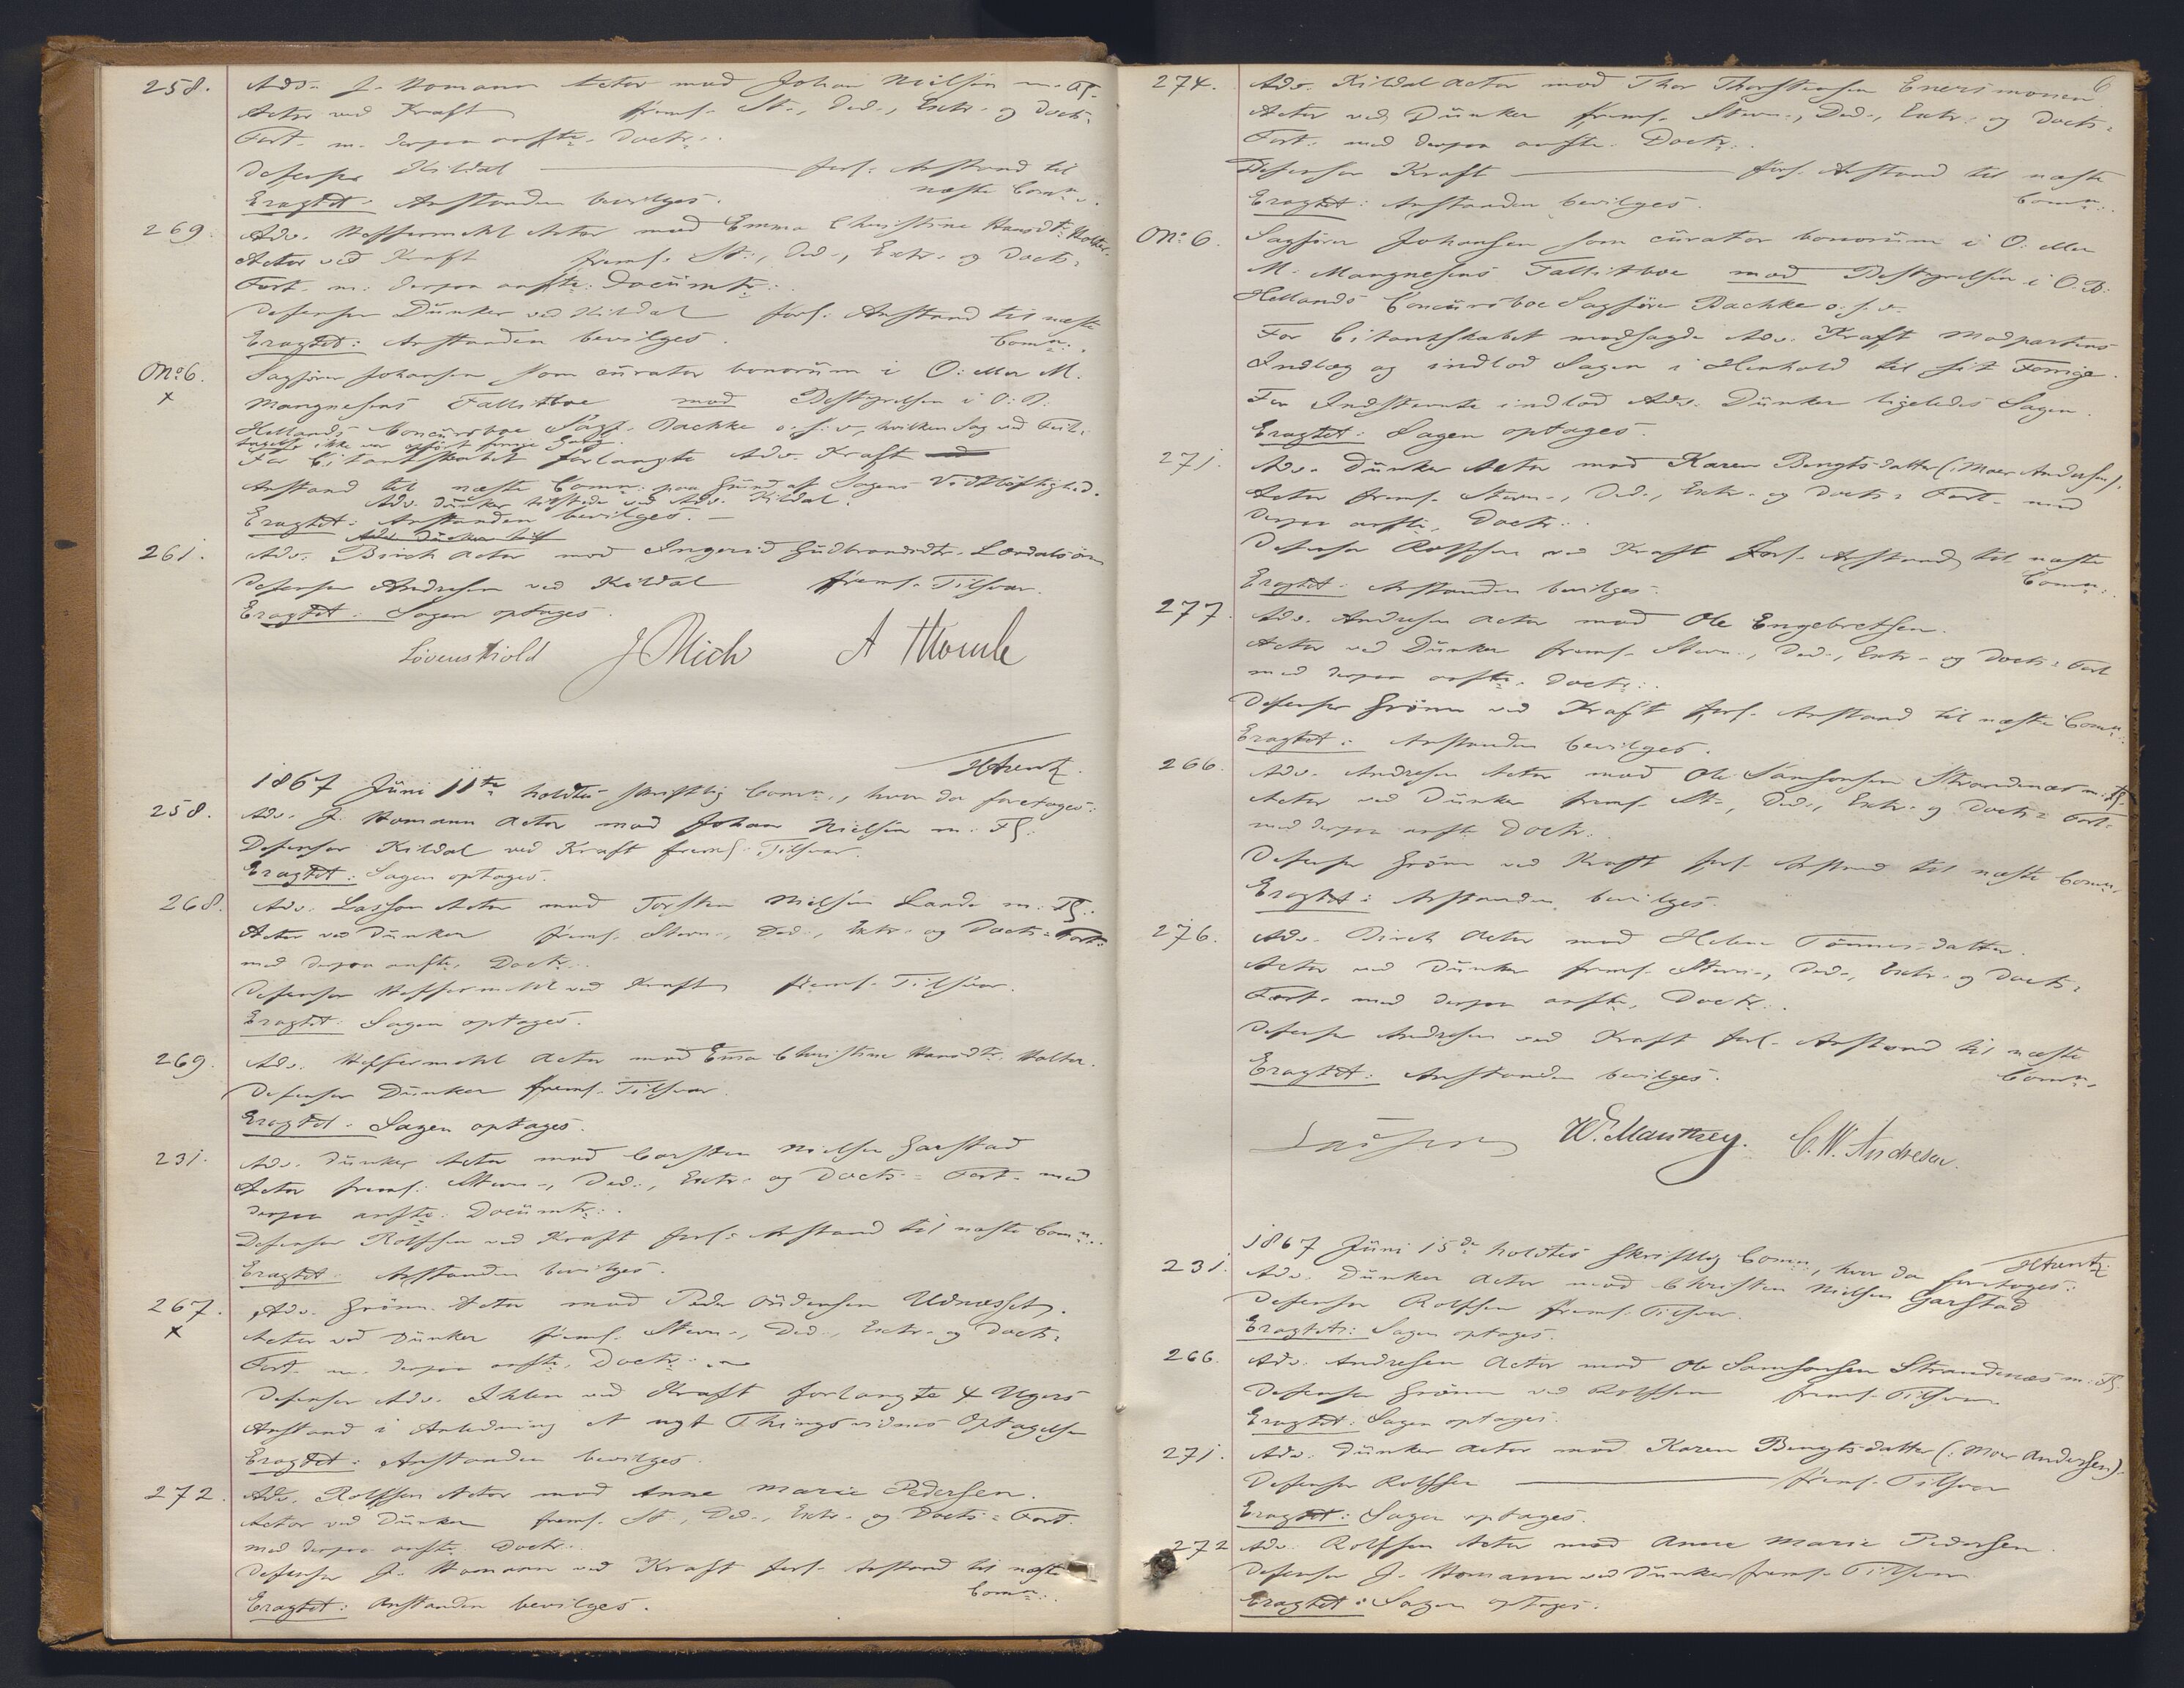 258. Adv. J. Homann Actor mod Johan Nielsen m. Fl.
Actor ved Kraft frems. St., Ded., Extr. og Docts.
Fort. m. derpaa anfte. Doctr.
Defensor Kildal forl. Anstand til
næste Comn.
Eragtet: Anstanden bevilges.
269. Adv. Heffermehl Actor mod Emma Christine Hansdtr. Holter.
Actor ved Kraft frems. St., Ded., Extr. og Docts.
Fort. m. derpaa anfte. Documtr.
Defensor Dünker ved Kildal forl. Anstand til næste
Comn.
Eragtet: Anstanden bevilges.
No. 6. Sagfører Johansen som curator bonorum i O. Mer M.
x Mangnesens Fallitboe mod Bestyrelsen i O. B.
Hellands Concursboe Sagf. Bachke o. s. v., hvilken Sag ved Feil-
tagelse ikke var opført forrige Gang.
For Citantskabet forlangte Adv. Kraft
Anstand til næste Comn. paa Grund af Sagens Vidtløftighed.
Adv. Dünker tilstede ved Adv. Kildal.
Eragtet: Anstanden bevilges.
261. Adv. Birch Actor mod Ingerid Gudbrandsdtr. Lærdalsøren
Defensor Andresen ved Kildal frems. Tilsvar.
Eragtet: Sagen optages.
Løvenskiold J Mich A Thomle
HArentz.
1867 Juni 11te holdtes skriftlig Comn., hvor da foretoges:
258. Adv. J. Homann Actor mod Johan Nielsen m. Fl.
Defensor Kildal ved Kraft frems. Tilsvar.
Eragtet: Sagen optages.
268. Adv. Lasson Actor mod Torsten Nielsen Lande m. Fl.
Actor ved Dünker frems. Stevn., Ded., Extr. og Docts. Fort.
med derpaa anfte. Doctr.
Defensor Heffermehl ved Kraft frems. Tilsvar.
Eragtet: Sagen optages.
269. Adv. Heffermehl Actor mod Ema Christine Hansdtr. Holter.
Defensor Dünker frems. Tilsvar.
Eragtet: Sagen optages.
231. Adv. Dünker Actor mod Carsten Nielsen Garstad
Actor frems. Stevn., Ded., Extr. og Docts. Fort. med
derpaa anfte. Documtr.
Defensor Rolfsen ved Kraft forl. Anstand til næste Comn.
Eragtet: Anstanden bevilges.
267. Adv. Grønn Actor mod Peder Audensen Udnæsset.
x Actor ved Dünker frems. Stevn., Ded., Extr. og Docts.
Fort. m. derpaa anfte. Doctr.
Defensor Adv. Ihlen ved Kraft forlangte 4 Ugers
Anstand i Anledning et nyt Thingsvidnes Optagelse
Eragtet: Anstanden bevilges.
272. Adv. Rolfsen Actor mod Anne Marie Pedersen.
Actor ved Dünker frems. St., Ded., Extr. og Docts. Fort.
med derpaa anfte. Doctr.
Defensor J. Homann ved Kraft forl. Anstand til næste
Comn.
Eragtet: Anstanden bevilges.
6
274. Adv. Kildal Actor mod Thor Thorstensen Enerimonen.
Actor ved Dünker frems. Stevn., Ded., Extr. og Docts.
Fort. med derpaa anfte. Doctr.
Defensor Kraft forl. Anstand til næste
Comn.
Eragtet: Anstanden bevilges.
No. 6. Sagfører Johansen som curator bonorum i O. Mer
M. Mangnesens Fallitboe mod Bestyrelsen i O. B.
Hellands Concursboe Sagfører Bachke o. s. v.
For Citantskabet modsagde Adv. Kraft Modpartens
Indlæg og indlod Sagen i Henhold til sit Forrige.
For Indstevnte indlod Adv. Dünker ligeledes Sagen.
Eragtet: Sagen optages.
271. Adv. Dünker Actor mod Karen Bengtsdatter (: Moer Andersen).
Actor frems. Stevn., Ded., Extr. og Docts. Fort. med
derpaa anfte. Doctr.
Defensor Rolfsen ved Kraft forl. Anstand til næste
Comn.
Eragtet: Anstanden bevilges.
277. Adv. Andresen Actor mod Ole Engebretsen.
Actor ved Dünker frems. Stevn., Ded., Extr. og Docts. Fort
med derpaa anfte. Doctr.
Defensor Grønn ved Kraft forl. Anstand til næste Comn.
Eragtet: Anstanden bevilges.
266. Adv. Andresen Actor mod Ole Samsonsen Strandenæs m. Fl.
Actor ved Dünker frems. St., Ded., Extr. og Docts. Fort.
med derpaa anfte Doctr.
Defensor Grønn ved Kraft forl. Anstand til næste Comn.
Eragtet: Anstanden bevilges.
276. Adv. Birch Actor mod Helene Tønnesdatter.
Actor ved Dünker frems. Stevn., Ded., Extr. og Docts.
Fort. med derpaa anfte. Doctr.
Defensor Andresen ved Kraft forl. Anstand til næste
Comn.
Eragtet: Anstanden bevilges.
Lasson W. Manthey. C. W. Andresen.
HArentz.
1867 Juni 15de holdtes skriftlig Comn., hvor da foretoges:
231. Adv. Dünker Actor mod Christen Nielsen Garstad
Defensor Rolfsen frems. Tilsvar.
Eragtet: Sagen optages.
266. Adv. Andresen Actor mod Ole Samsonsen Strandenæs m. Fl.
Defensor Grønn ved Rolfsen frems. Tilsvar.
Eragtet: Sagen optages.
271. Adv. Dünker Actor mod Karen Bengtsdatter (: Moer Andersen).
Defensor Rolfsen frems. Tilsvar
Eragtet: Sagen optages.
272 Adv. Rolfsen Actor mod Anne Marie Pedersen.
Defensor J. Homann ved Dünker frems. Tilsvar
Eragtet: Sagen optages.